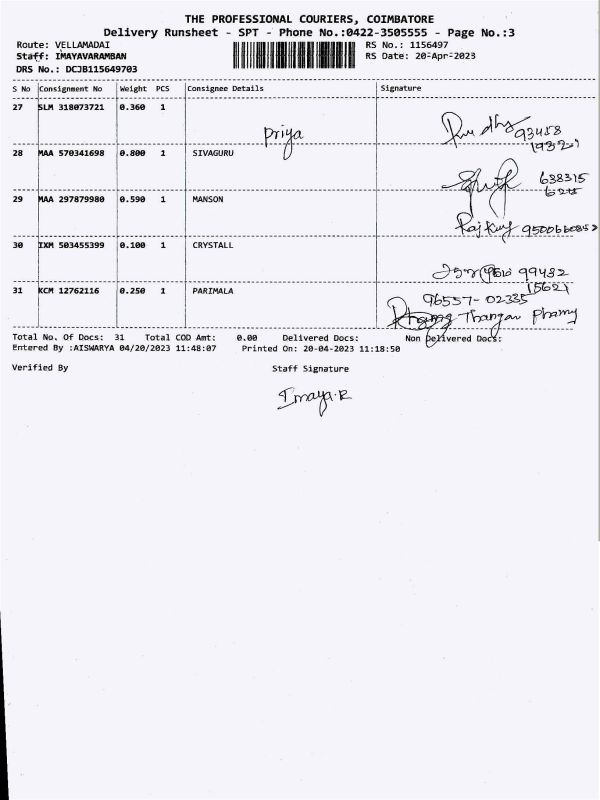 THE PROFESSIONAL COURIERS, COIMBATORE
Delivery Runsheet - SPT - Phone No.:0422-3505555 - Page No.:3
Route: VELLAMADAI RS No.: 1156497
Staff: IMAYAVARAMBAN RS Date: 20-Apr-2023
DRS No.: DCJB115649703
S No Consignment No Weight PCS Consignee Details Signature
27 SLM 318073721 0.360 1
Priya 93458
19321
28 MAA 570341698 0.800 1 SIVAGURU
638315
29 MAA 297879980 0.590 1 MANSON
Rajkuy 9500660852
30 IXM 503455399 0.100 1 CRYSTALL
99432
15621
31 KCM 12762116 0.250 1 PARIMALA
96557-02335
Thangav Phamy
Total No. Of Docs: 31 Total COD Amt: 0.00 Delivered Docs: Non Delivered Docs:
Entered By :AISWARYA 04/20/2023 11:48:07 Printed On: 20-04-2023 11:18:50
Verified By Staff Signature
Imaya.R